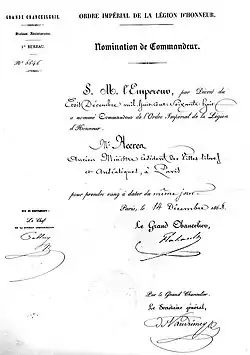 GRANDE CHANCELLERIE
ORDRE IMPÉRIAL DE LA LÉGION D'HONNEUR.
Division Administrative.
1er BUREAU.
Nomination de Commandeur.
S. M. l'Empereur, par Décret du
Trois Décembre mil huit cent soixante huit
a nommé Commandeur de l'Ordre Impérial de la Légion
d'Honneur
Mr Heeren
Ancien Ministre résident des Villes libres
et Anséatiques, à Paris
pour prendre rang à dater du même jour.
Paris, le 14 Décembre 1868.
Le Grand Chancelier,
Le Chef
Par le Grand Chancelier:
Le Secrétaire général,